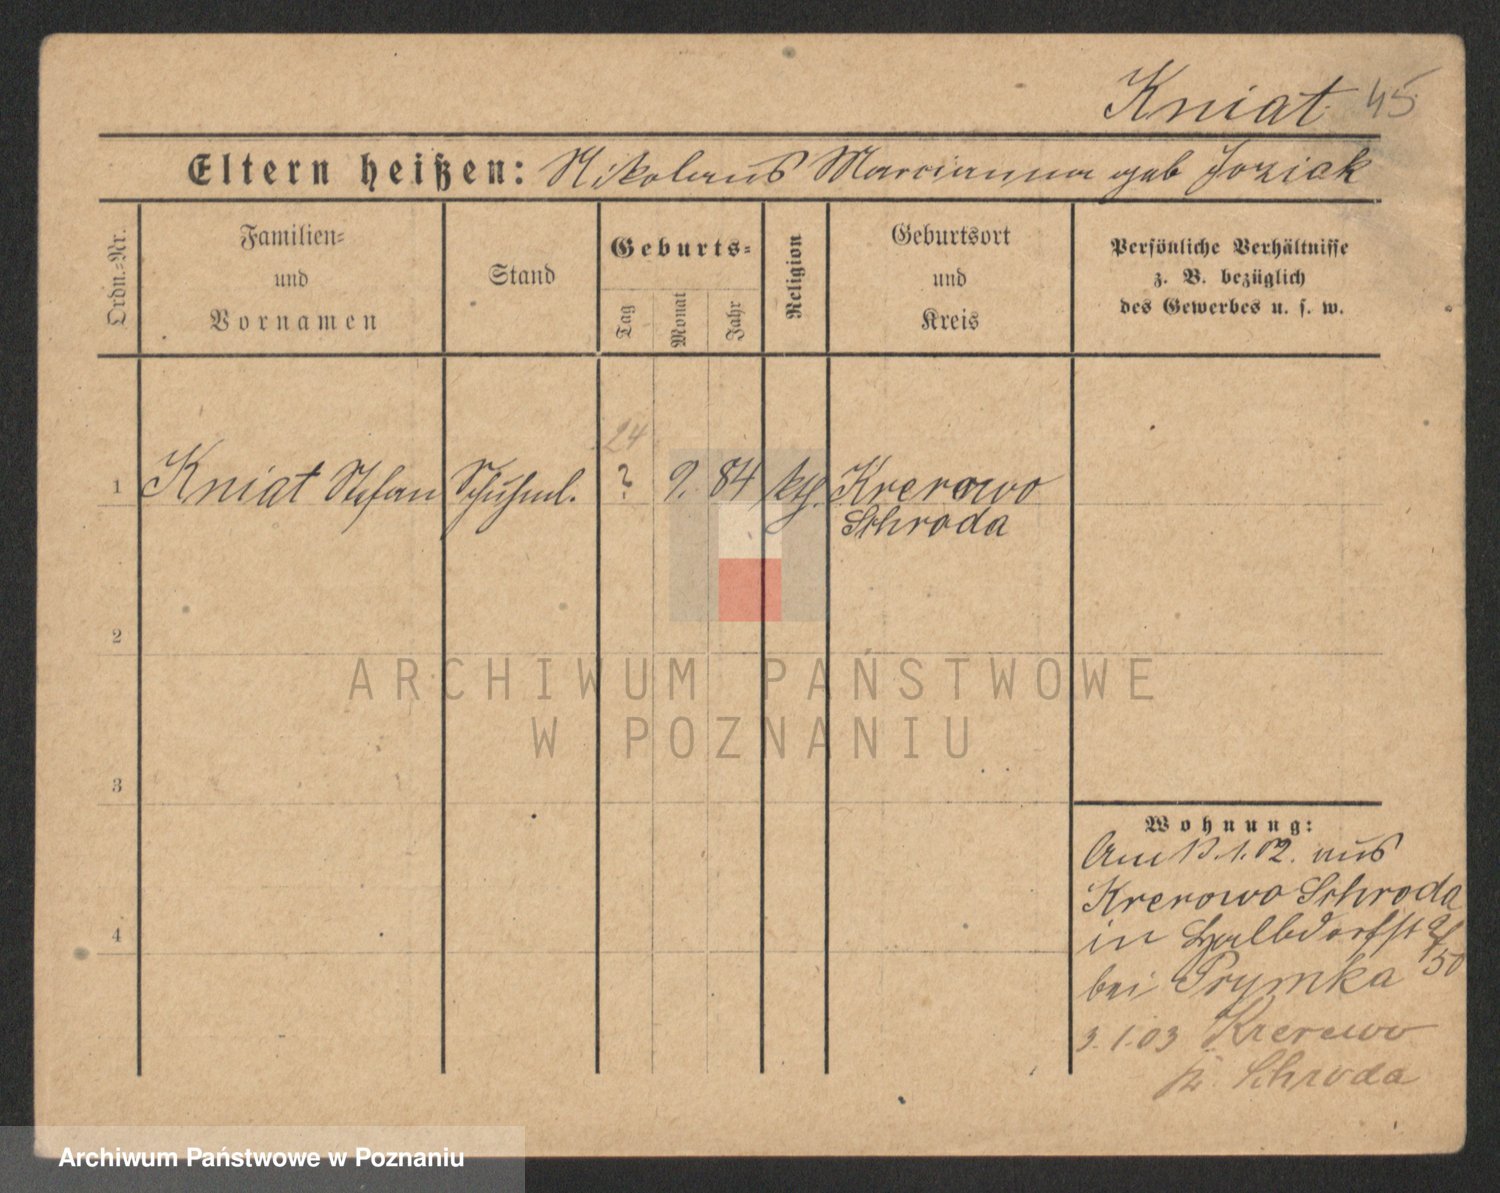 Kniat 45
Eltern heißen: Nikolaus Marcianna geb Joziak
Ordn.=Nr.
Familien=
und
Vornamen
Stand
Geburts=
Tag
Monat
Jahr
Religion
Geburtsort
und
Kreis
Persönliche Verhältnisse
z. B. bezüglich
des Gewerbes u. s. w.
24
1 Kniat Stefan Schuhml. ? 9. 84 kth. Krerowo
Schroda
2
ARCHIWUM PAŃSTWOWE
W POZNANIU
3
Wohnung:
Am 13.1.02. aus
Krerowo Schroda
in Halbdorfst
bei Prymka
3.1.03 Krerowo
Kr. Schroda
4
Archiwum Państwowe w Poznaniu